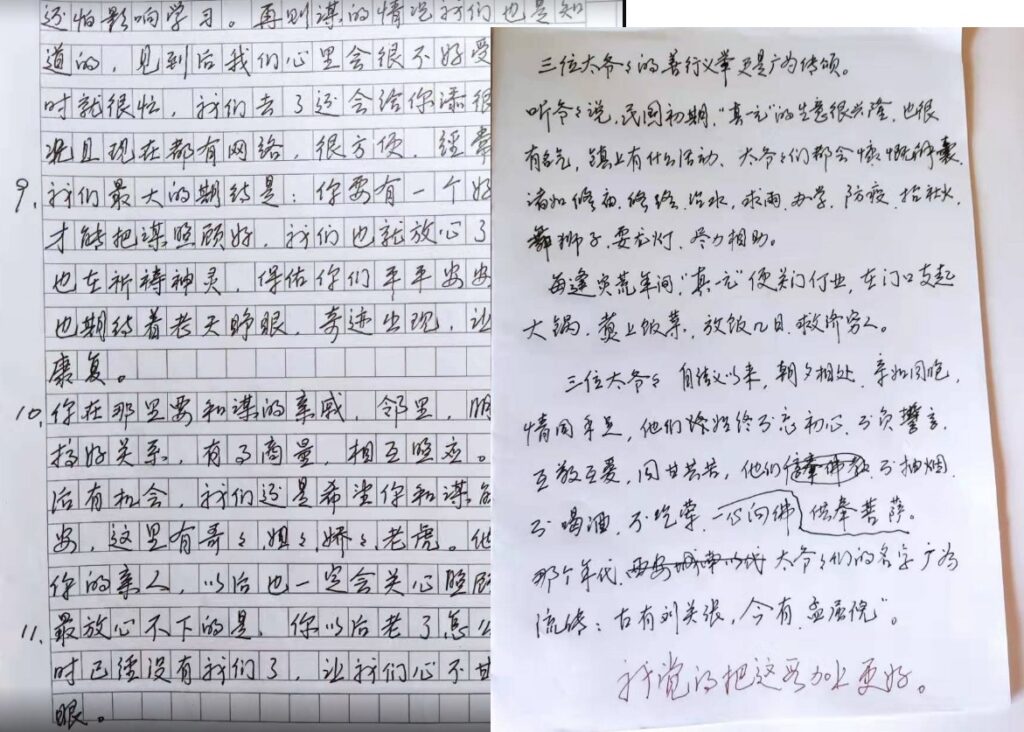 还怕影响学习。再则谋的情况我们也是知
道的，见到后我们心里会很不好受
时就很忙，我们去了还会给你添很
况且现在都有网络，很方便，经常
9. 我们最大的期待是：你要有一个好
才能把谋照顾好，我们也就放心了
也在祈祷神灵，保佑你们平平安安
也期待着老天睁眼，奇迹出现，让
康复。
10. 你在那里要和谋的亲戚，邻里，朋
搞好关系，有了商量，相互照应。
后有机会，我们还是希望你和谋能
安，这里有哥々，姐々，娇々，老虎。他
你的亲人，以后也一定会关心照顾
11. 最放心不下的是，你以后老了怎么
时已经没有我们了，让我们心不甘
眼。
三位太爷々的善行义举更是广为传颂。
听爷々说，民国初期，“真一元”的生意很兴隆，也很
有名气，镇上有什么活动，太爷々们都会慷慨解囊，
诸如修庙，修路，治水，求雨，办学，防疫，抬社火，
舞狮子，耍龙灯，尽力相助。
每逢灾荒年间，“真一元”便关门行业，在门口支起
大锅，煮上饭菜，放饭几日，救济穷人。
三位太爷々自结义以来，朝夕相处，亲如同胞，
情同手足，他们始终不忘初心，不负誓言，
互敬互爱，同甘共苦，他们不抽烟，
不喝酒，不吃荤，一心向佛，信奉菩萨。
那个年代，太爷々们的名字广为
流传：古有刘关张，今有孟孟倪”。
我觉的把这段加上更好。